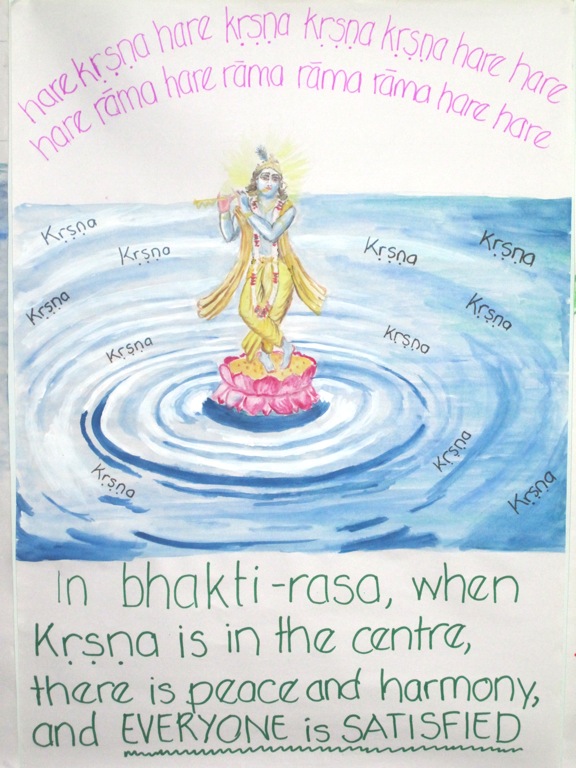 hare kṛṣṇa hare kṛṣṇa kṛṣṇa kṛṣṇa hare hare
hare rāma hare rāma rāma rāma hare hare
Kṛṣṇa
Kṛṣṇa
Kṛṣṇa
Kṛṣṇa
Kṛṣṇa
Kṛṣṇa
Kṛṣṇa
Kṛṣṇa
Kṛṣṇa
Kṛṣṇa
Kṛṣṇa
In bhakti-rasa, when
Kṛṣṇa is in the centre,
there is peace and harmony,
and EVERYONE is SATISFIED